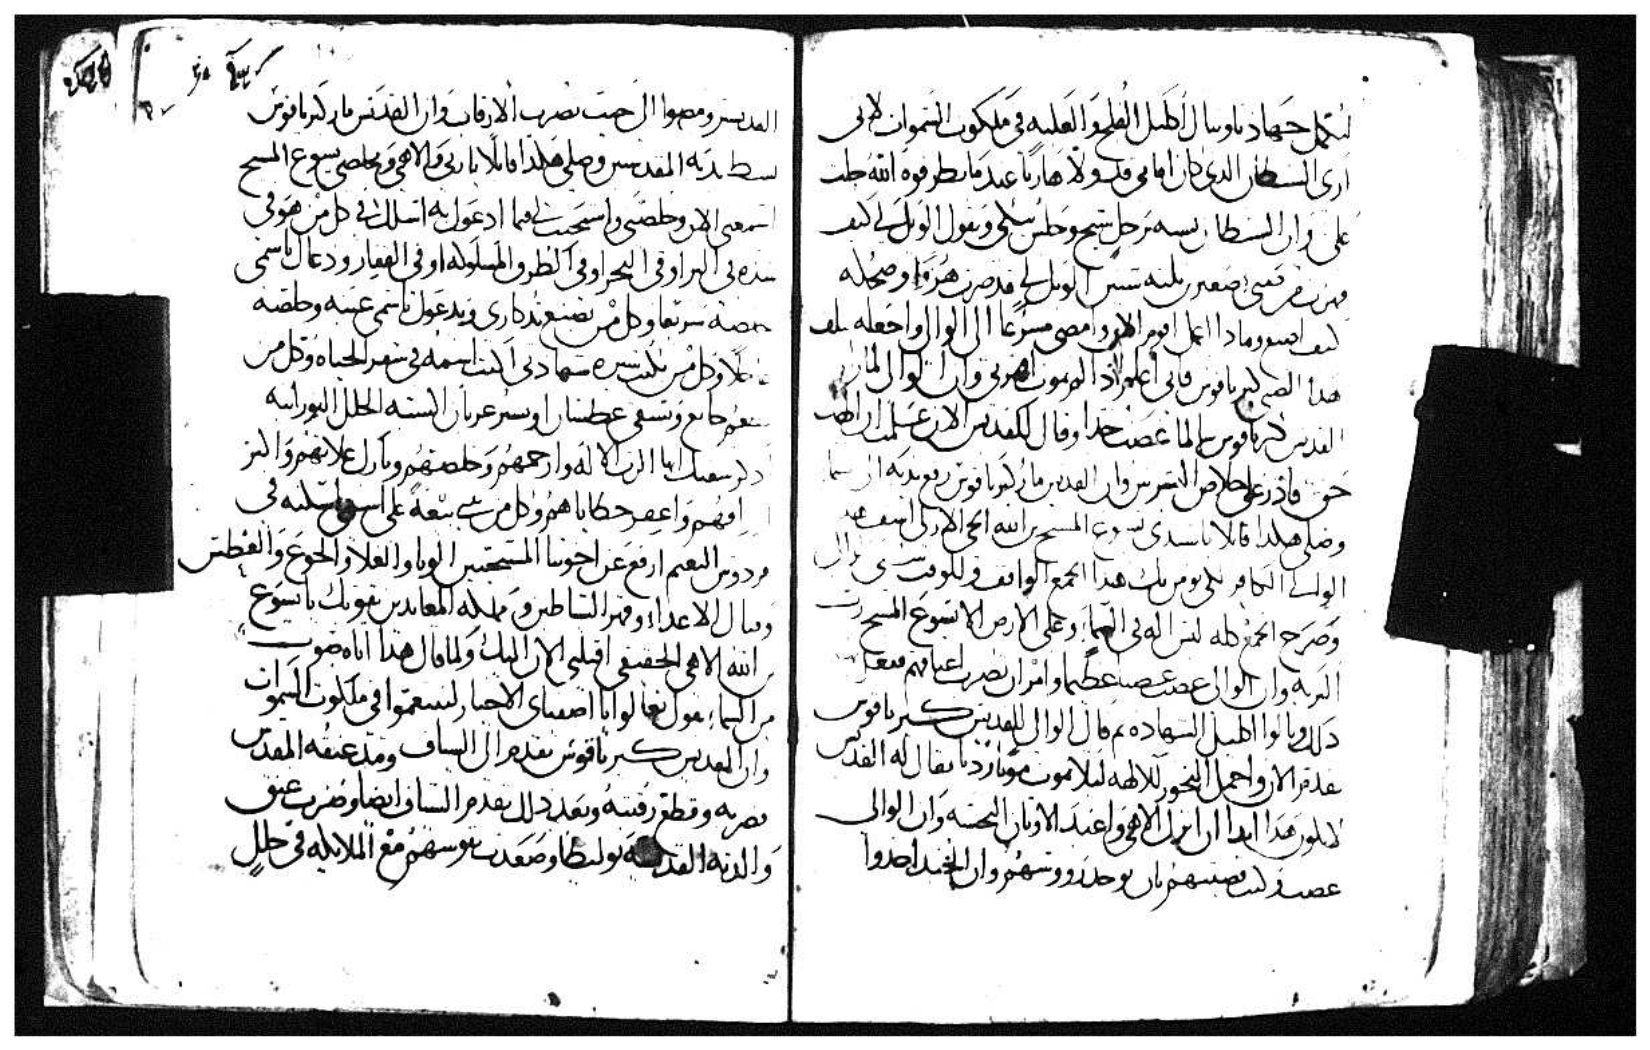 لنكمل جهادنا وننال اكليل الفلح والغلبه في ملكوت السموات لاني
ارى الشيطان الذي كان امامي قد ولا هاربا عندما
على وان الشيطان تشبه برجل شيخ وجلس يبكي ويقول الويل لي كيف
قهرني صغير الويل لي قد صرت هزوا وضحكه
كيف اصنع وماذا اعمل اقوم الان وامضي مسرعا الى الوالي واجعله
هذا الصبي كيرياقوس فاني اعلم وان الوالي لما راى
القديس كيرياقوس سالما غضب جدا وقال للقديس الان علمت ان الهك
حق قادر على خلاص وان القديس مار كيرياقوس رفع يديه الى السما
وصلى هكذا قائلا ياسيدي يسوع المسيح بن الله الحي
الوالي الكافر لكي يومن بك هذا الجمع الواقف وللوقت
وصرخ الجمع كله ليس اله في السما وعلى الارض الا يسوع المسيح رب
البريه وان الوالي غضب غضبا عظيما وامر ان تضرب اعناقهم ففعل
ذلك ونالوا اكليل الشهاده ثم قال الوالي للقديس كيرياقوس
تقدم الان واحمل البخور للالهه ليلا تموت موتا رديا فقال له القديس
لا يكون هذا ابدا ان اترك الاهي واعبد الاوثان النجسه وان الوالي
غضب وكتب قضيتهم بان يوخذ رووسهم وان الجند اخذوا
القديسين ومضوا الى حيث تضرب الارقاب وان القديس مار كيرياقوس
بسط يديه المقدسين وصلى هكذا قائلا ياربي والاهي ومخلصي يسوع المسيح
اسمعني الان وخلصني واستجيب لي فيما ادعوك به اسلك في كل من هو في
شده في البر او في البحر او في الطرق المسلوكه او في القفار ودعاك باسمي
سريعا وكل من يصنع تذكاري ويدعوك باسمي عينه وخلصه
وكل من يكتب سيره شهادتي اكتب اسمه في سفر الحياه وكل من
يطعم جائع ويسقي عطشان او يستر عريان البسه الحلل النورانيه
ايها الرب الاله وارحمهم وخلصهم وبارك غلاتهم
واغفر خطاياهم وكل من بيعه على اسمي اسكنه في
فردوس النعيم ارفع عن اخوتنا المسيحيين الوبا والغلا والجوع والعطش
وقتال الاعداء وقهر الشياطين ومملكه المعاندين بقوتك يا يسوع
بن الله الاهي الحقيقي اقبلني الان اليك ولما قال هذا اتاه صوت
من السماء يقول تعالوا يا اصفياي الاخيار لتتنعموا في ملكوت السموات
وان القديس كيرياقوس تقدم الى السياف ومد عنقه المقدس
فضربه وقطع رقبته وبعد ذلك تقدم السياف ايضا وضرب عنق
والدته القديسه يوليطا وصعدت نفوسهم مع الملايكه في حلل